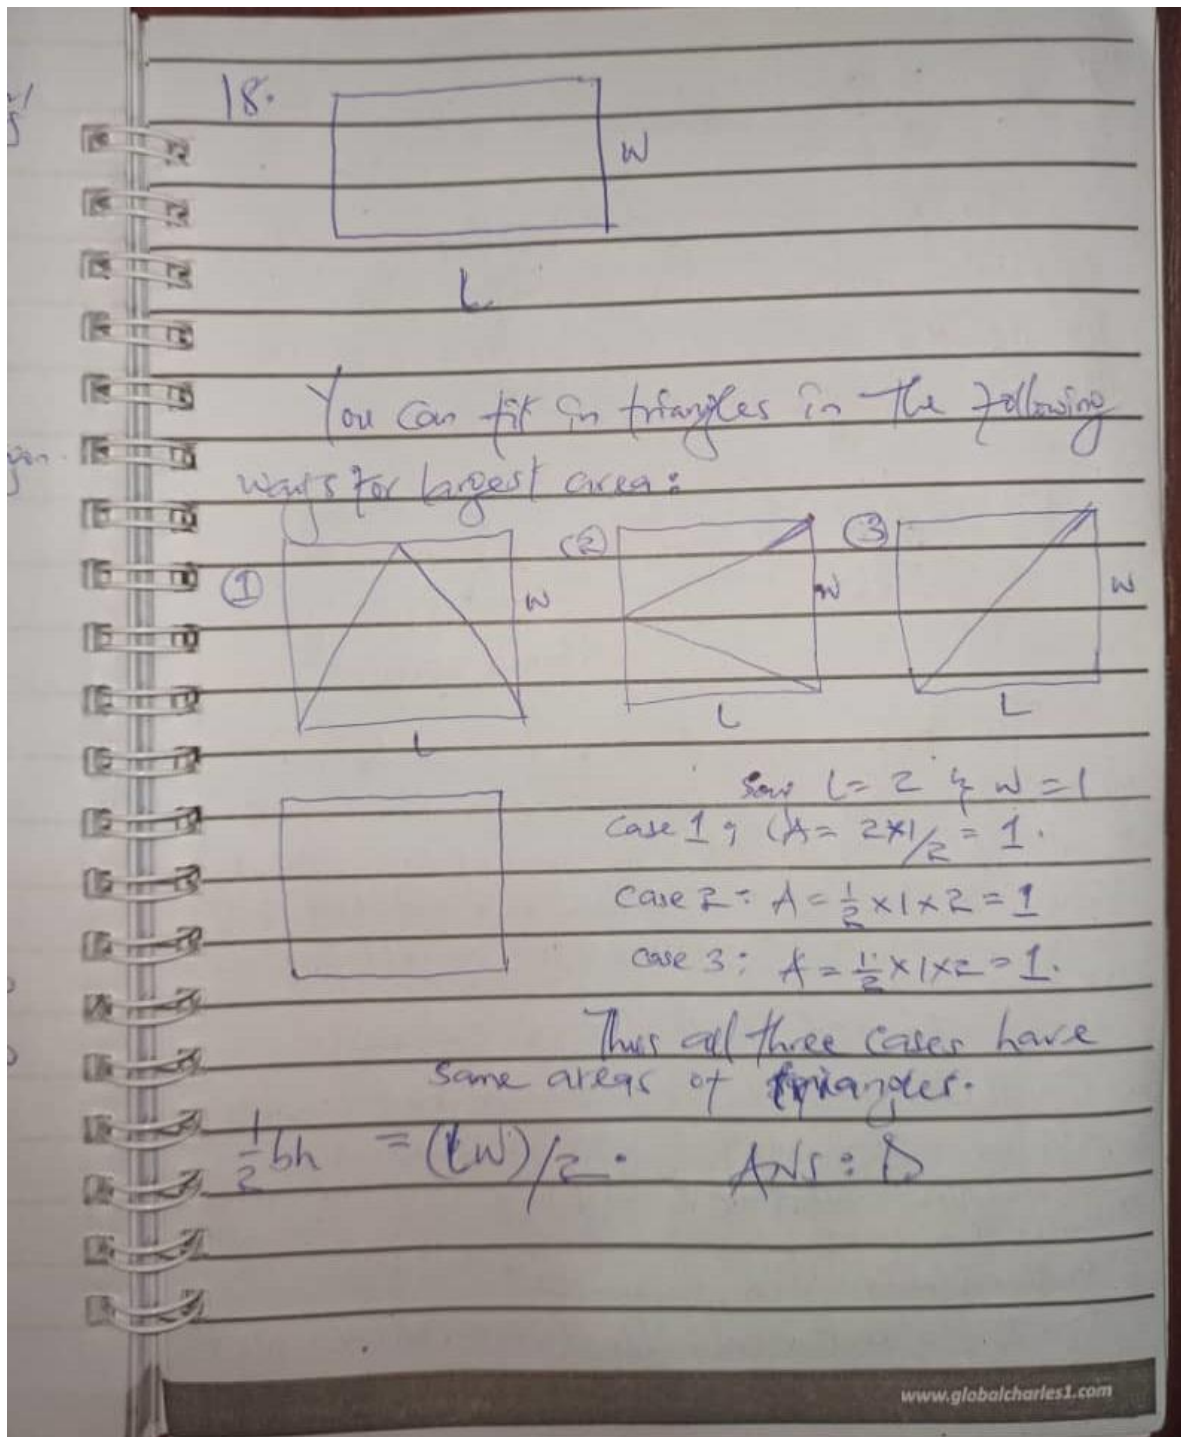 18.
W
L
You can fit in triangles in the following
ways for largest area:
① ② ③
W W W
L L L
Say L = 2 & W = 1
Case 1; A = 2×1/2 = 1.
Case 2: A = 1/2 × 1 × 2 = 1
Case 3: A = 1/2 × 1 × 2 = 1.
Thus all three cases have
same areas of triangles.
1/2 bh = (LW)/2. ANS: D
www.globalcharles1.com